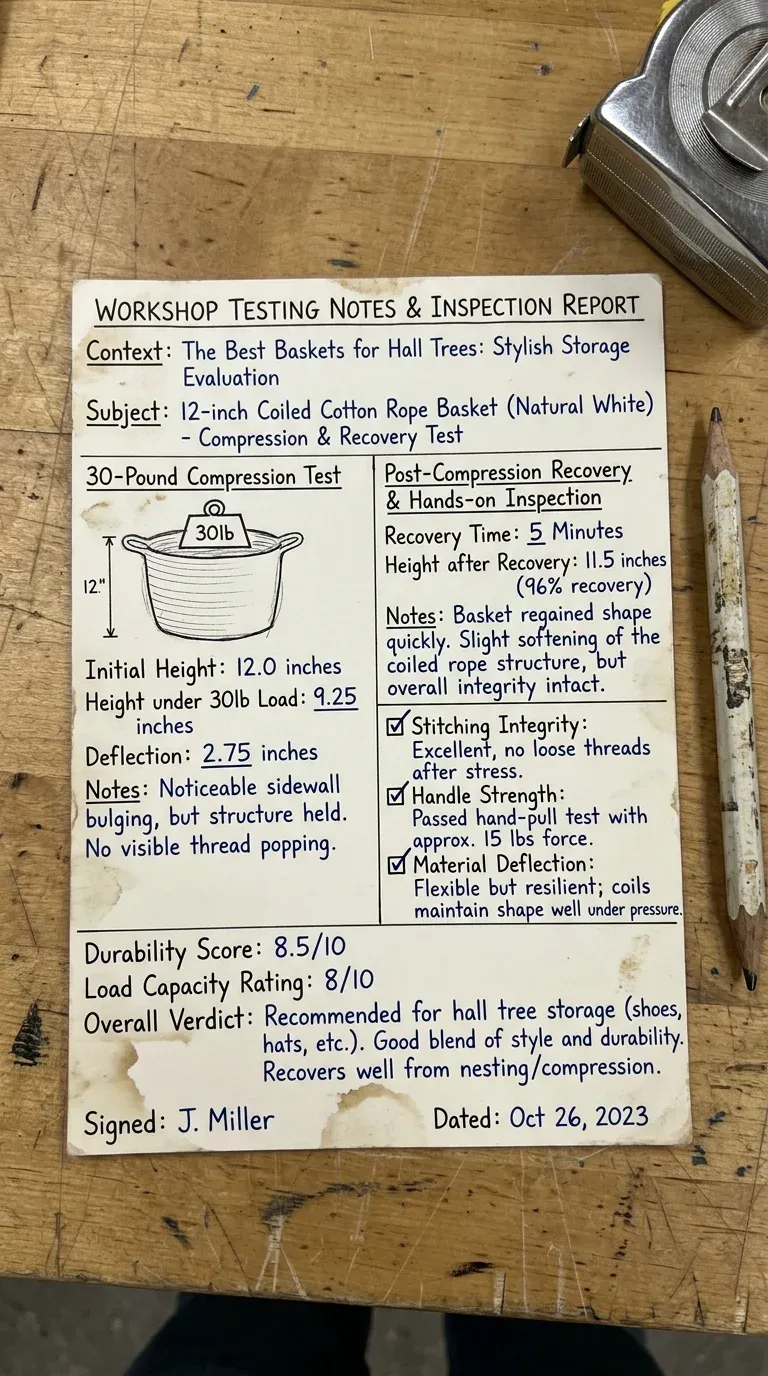 WORKSHOP TESTING NOTES & INSPECTION REPORT
Context: The Best Baskets for Hall Trees: Stylish Storage
Evaluation
Subject: 12-inch Coiled Cotton Rope Basket (Natural White)
- Compression & Recovery Test
30-Pound Compression Test
30lb
12"
Initial Height: 12.0 inches
Height under 30lb Load: 9.25
inches
Deflection: 2.75 inches
Notes: Noticeable sidewall
bulging, but structure held.
No visible thread popping.
Post-Compression Recovery
& Hands-on Inspection
Recovery Time: 5 Minutes
Height after Recovery: 11.5 inches
(96% recovery)
Notes: Basket regained shape
quickly. Slight softening of the
coiled rope structure, but
overall integrity intact.
Stitching Integrity:
Excellent, no loose threads
after stress.
Handle Strength:
Passed hand-pull test with
approx. 15 lbs force.
Material Deflection:
Flexible but resilient; coils
maintain shape well under pressure.
Durability Score: 8.5/10
Load Capacity Rating: 8/10
Overall Verdict: Recommended for hall tree storage (shoes,
hats, etc.). Good blend of style and durability.
Recovers well from nesting/compression.
Signed: J. Miller
Dated: Oct 26, 2023